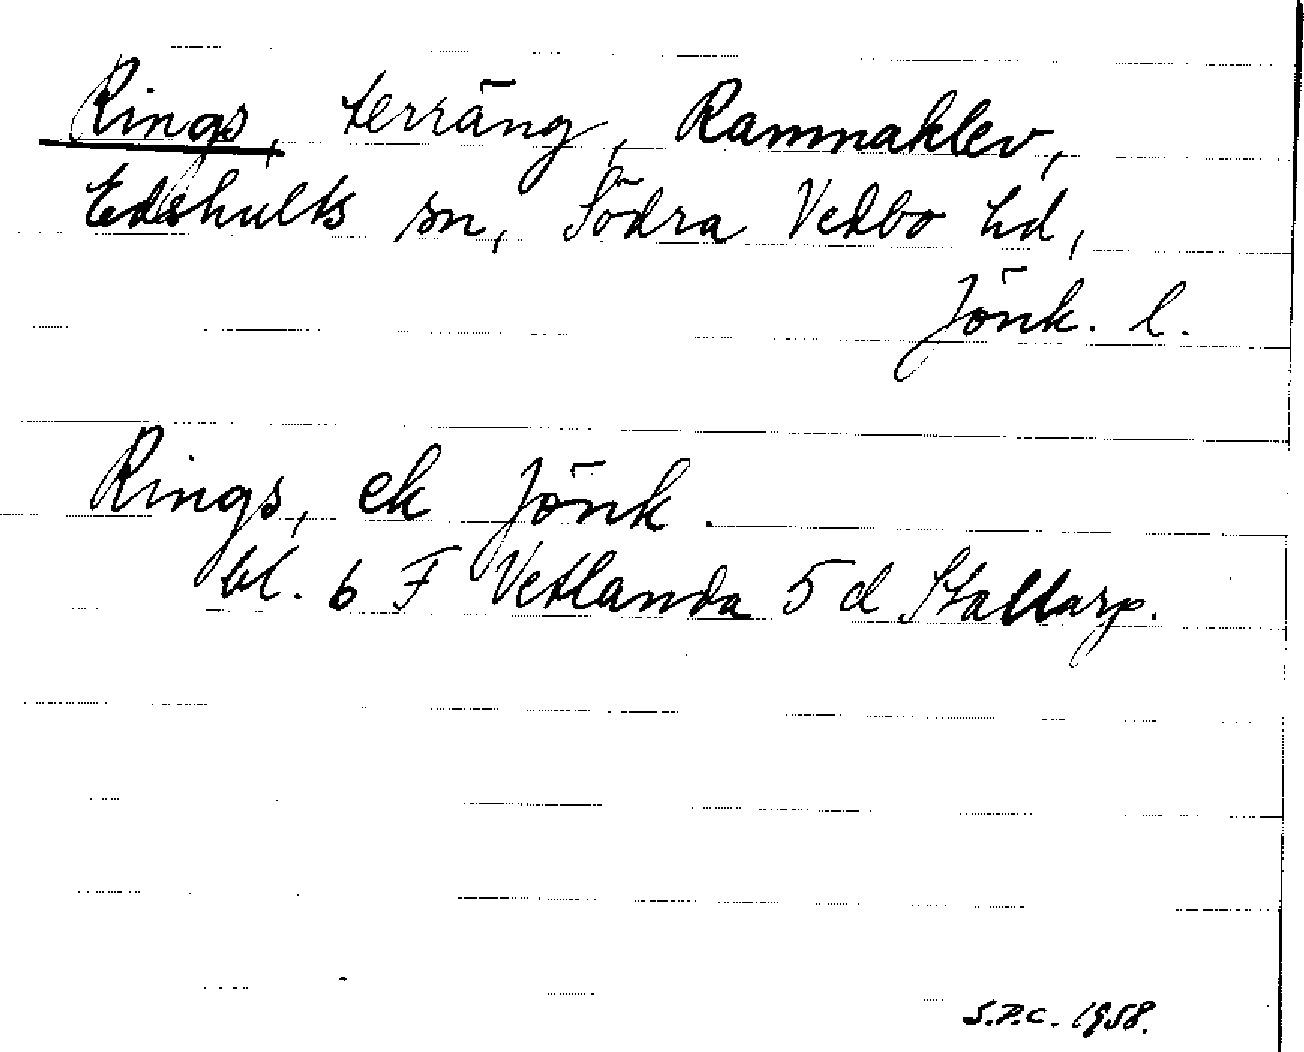 Rings, terräng, Ramnaklev,
Edshults sn, Södra Vedbo hd,
Jönk. l.
Rings, ek Jönk.
bl. 6 F Vetlanda 5 d Stallarp.
S.P.C. 1958.